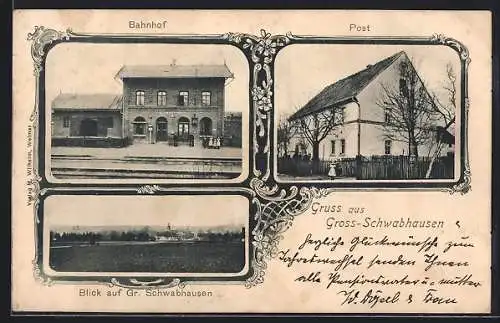 Bahnhof
Post
Gruss aus
Gross-Schwabhausen
Herzliche Glückwünsche zum
Jahreswechsel senden Ihnen
alle Pensionsvater u. mutter
W. & Frau
Blick auf Gr. Schwabhausen
Verlag Wilhelm, Weimar